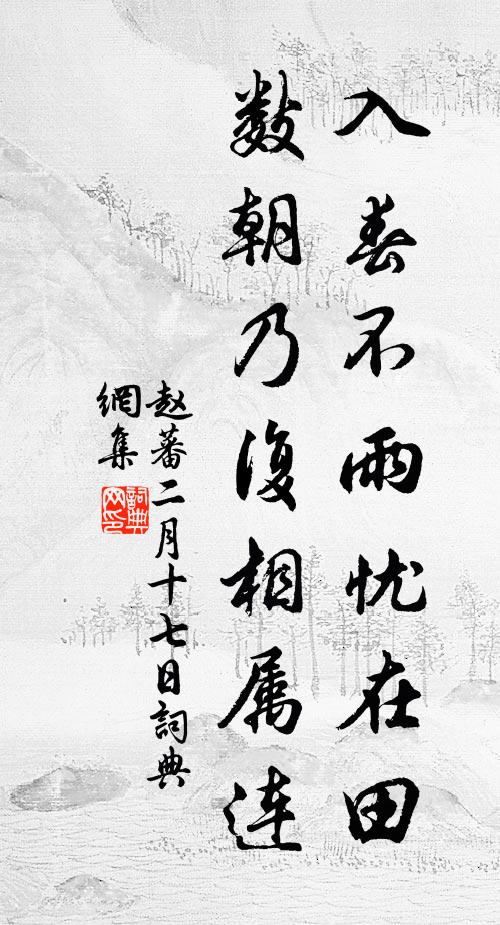 入春不雨忧在田
数朝乃復相属连
赵蕃二月十七日詞典
網集
詞典网印